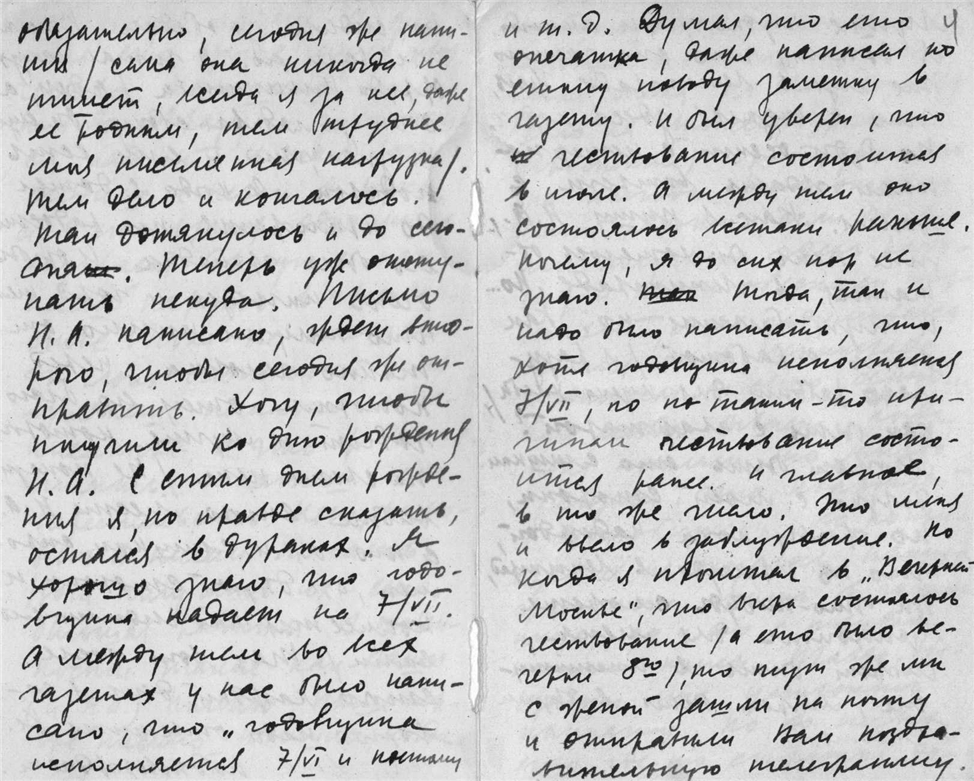 обязательно, сегодня же напи-
шу /сама она никогда не
пишет, всегда я за нее, даже
ее родным, тем труднее
моя писменная нагрузка/.
Тем дело и кончалось.
Так дотянулось и до сего-
дня. Теперь уже отсту-
пать некуда. Письмо
Н. А. написано, ждет вто-
рого, чтобы сегодня же от-
править. Хочу, чтобы
получили ко дню рождения
Н. А. С этим днем рожде-
ния я, по правде сказать,
остался в дураках. Я
хорошо знаю, что годо-
вщина падает на 7/VII.
А между тем во всех
газетах у нас было напи-
сано, что „годовщина
исполняется 7/VI и поэтому
4
и т. д. Думал, что это
опечатка, даже написал по
этому поводу заметку в
газету. И был уверен, что
чествование состоится
в июле. А между тем оно
состоялось всетаки раньше.
Почему, я до сих пор не
знаю. Тогда, так и
надо было написать, что,
хотя годовщина исполняется
7/VII, но по таким-то при-
чинам чествование состо-
ится ранее. И главное,
в то же число. Это меня
и ввело в заблуждение. Но
когда я прочитал в „Вечерней
Москве", что вчера состоялось
чествование /а это было ве-
чером 8го/, то тут же мы
с женой зашли на почту
и отправили Вам поздра-
вительную телеграмму.